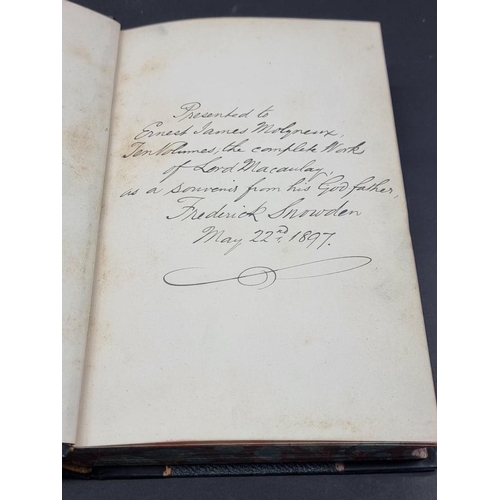 Presented to
Ernest James Molyneux,
Ten Volumes, the complete Work
of Lord Macaulay,
as a souvenir from his God father,
Frederick Snowden
May 22nd, 1897.